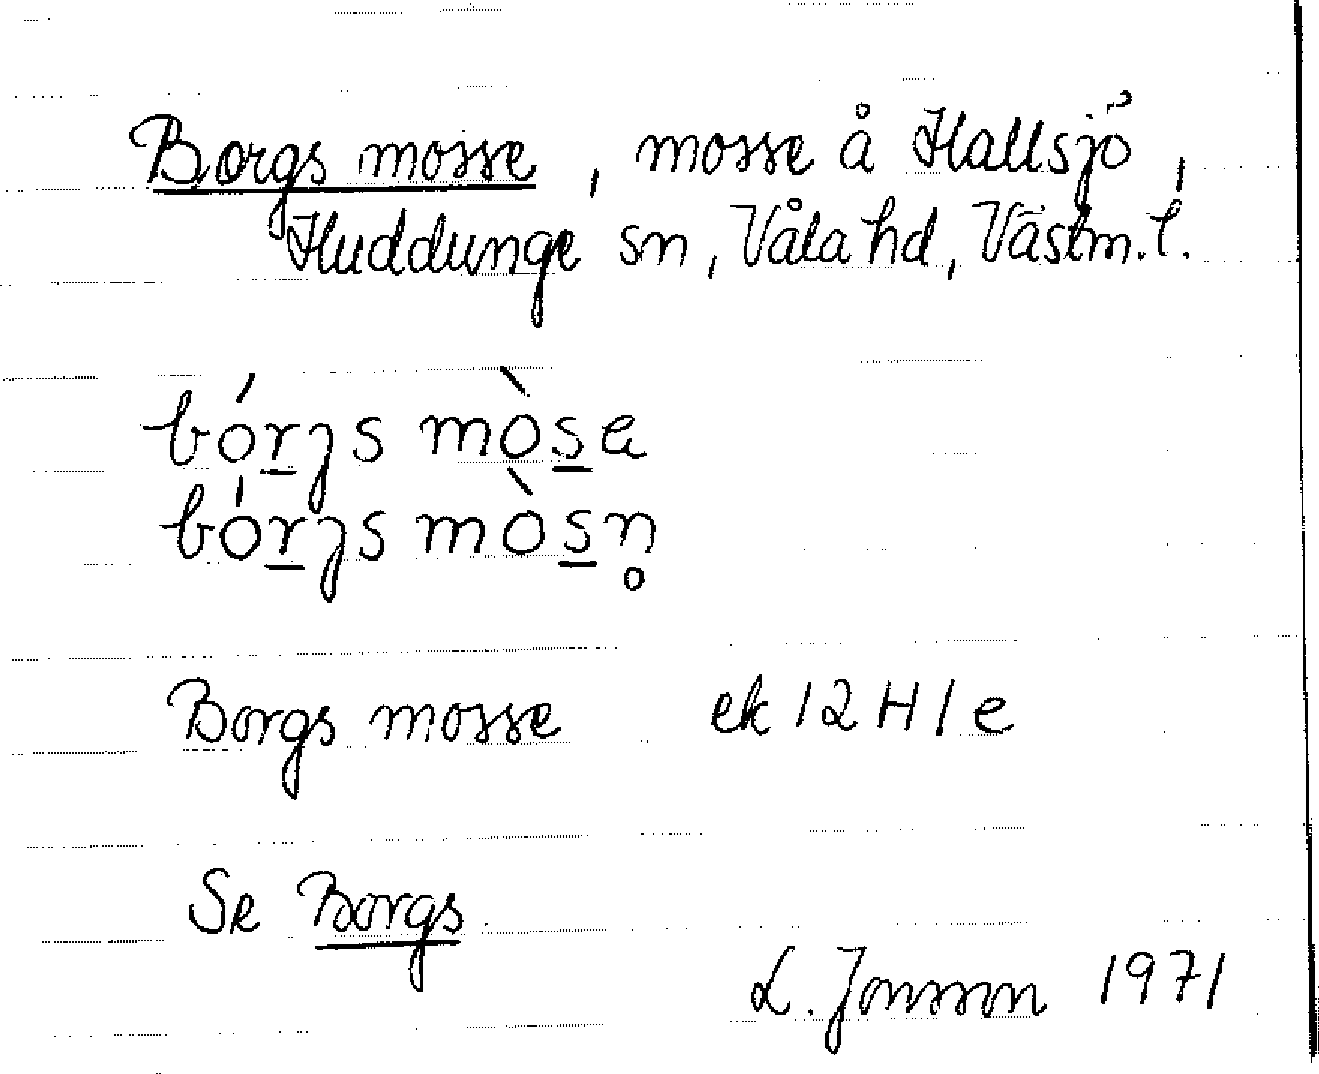 Borgs mosse, mosse å Hallsjö,
Huddunge sn, Våla hd, Västm. l.
bórȷs mòsa
bórȷs mòsn̥
Borgs mosse ek 12 H 1 e
Se Borgs.
L. Jonsson 1971